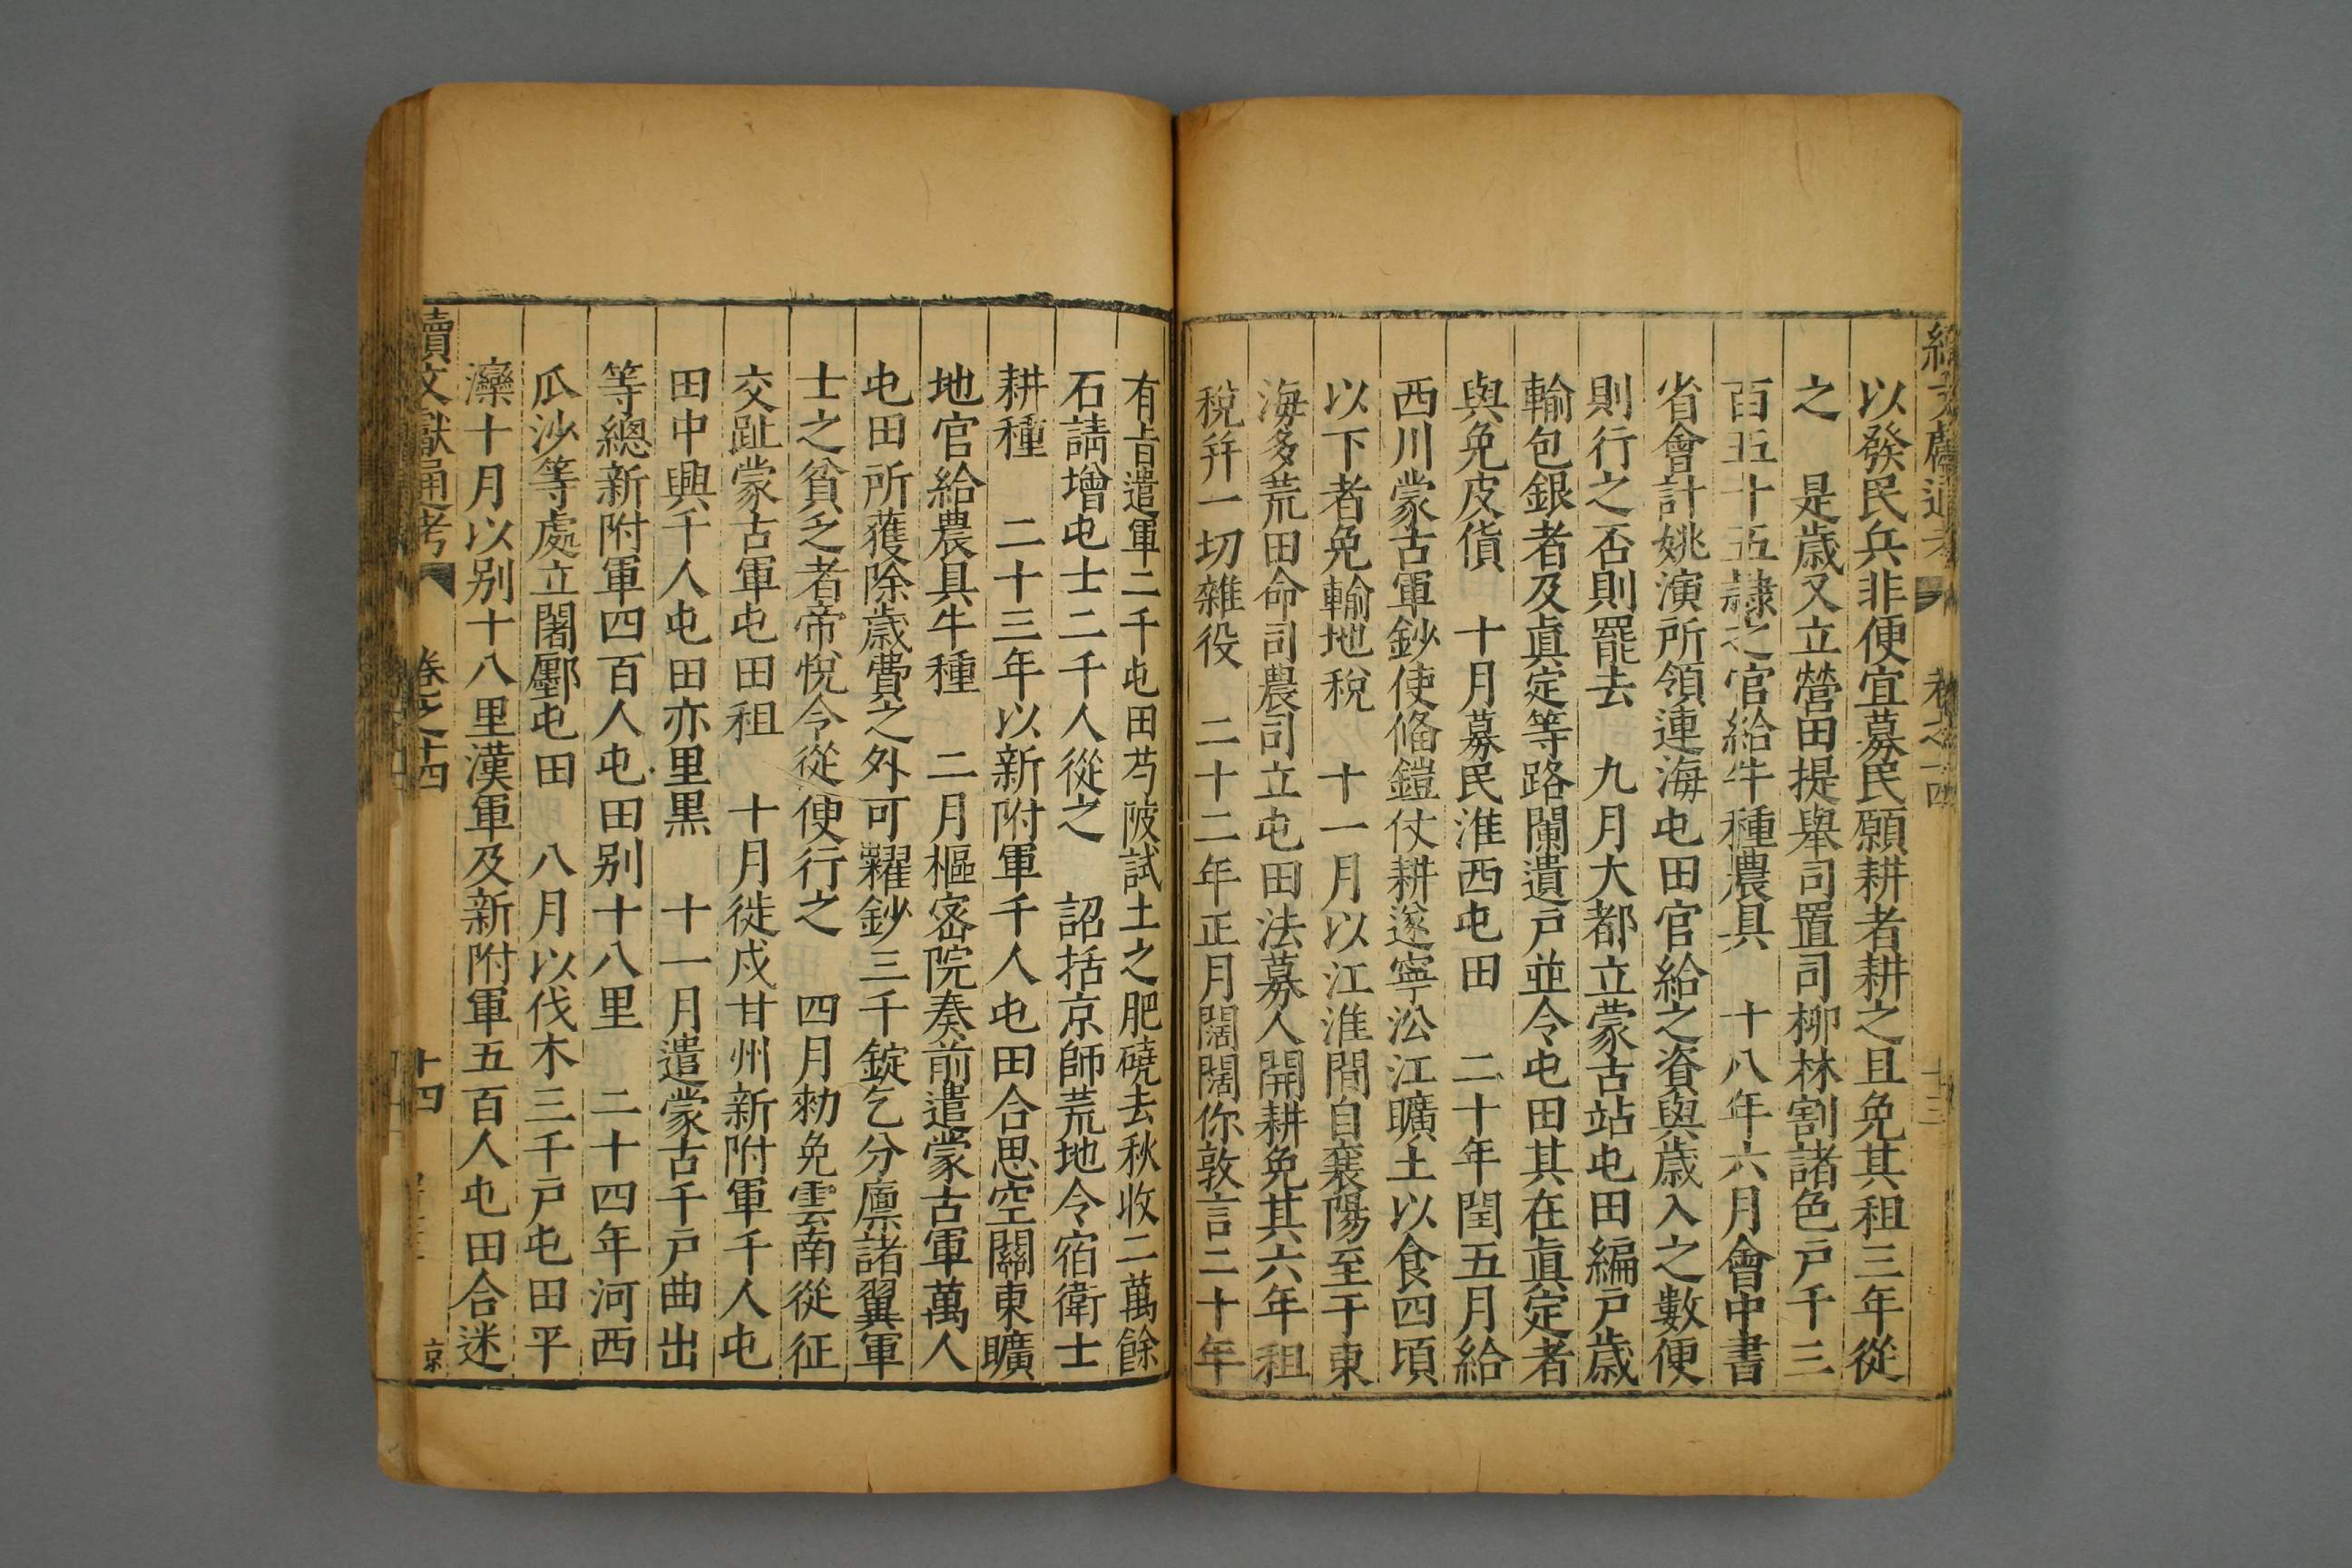 續文獻通考 卷之十四 十三
以發民兵非便宜募民願耕者耕之且免其租三年從
之 是歲又立營田提舉司置司柳林割諸色戶千三
百五十五隸之官給牛種農具 十八年六月會中書
省會計姚演所領連海屯田官給之資與歲入之數便
則行之否則罷去 九月大都立蒙古站屯田編戶歲
輸包銀者及眞定等路闌遺戶並令屯田其在眞定者
與免皮貨 十月募民淮西屯田 二十年閏五月給
西川蒙古軍鈔使俻鎧仗耕遂寧沿江曠土以食四頃
以下者免輸地稅 十一月以江淮間自襄陽至于東
海多荒田命司農司立屯田法募人開耕免其六年租
稅并一切雜役 二十二年正月闊闊你敦言二十年
有旨遣軍二千屯田芍陂試土之肥磽去秋收二萬餘
石請增屯士二千人從之 詔括京師荒地令宿衛士
耕種 二十三年以新附軍千人屯田合思空關東曠
地官給農具牛種 二月樞密院奏前遣蒙古軍萬人
屯田所獲除歲費之外可糶鈔三千錠乞分廪諸翼軍
士之貧乏者帝悅令從便行之 四月勑免雲南從征
交趾蒙古軍屯田租 十月徙戍甘州新附軍千人屯
田中興千人屯田亦里黑 十一月遣蒙古千戶曲出
等總新附軍四百人屯田别十八里 二十四年河西
瓜沙等處立闍鄽屯田 八月以伐木三千戶屯田平
灤十月以别十八里漢軍及新附軍五百人屯田合迷
續文獻通考 卷之十四 十四 京